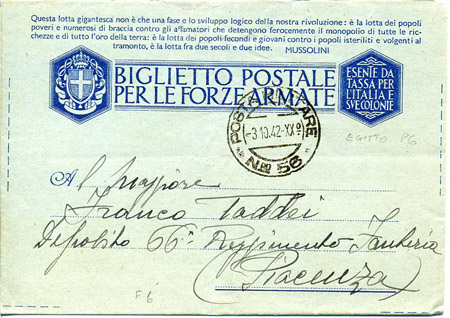 Questa lotta gigantesca non è che una fase e lo sviluppo logico della nostra rivoluzione: è la lotta dei popoli
poveri e numerosi di braccia contro gli affamatori che detengono ferocemente il monopolio di tutte le ric-
chezze e di tutto l'oro della terra: è la lotta dei popoli fecondi e giovani contro i popoli steriliti e volgenti al
tramonto, è la lotta fra due secoli e due idee. MUSSOLINI
BIGLIETTO POSTALE
PER LE FORZE ARMATE
ESENTE DA
TASSA PER
L'ITALIA E
SVE COLONIE
POSTA MILITARE
-3.10.42-XXº
N.RO 56
EGITTO P6
Al Maggiore
Franco Taddei
Deposito 66º Reggimento Fanteria
(Piacenza)
F6